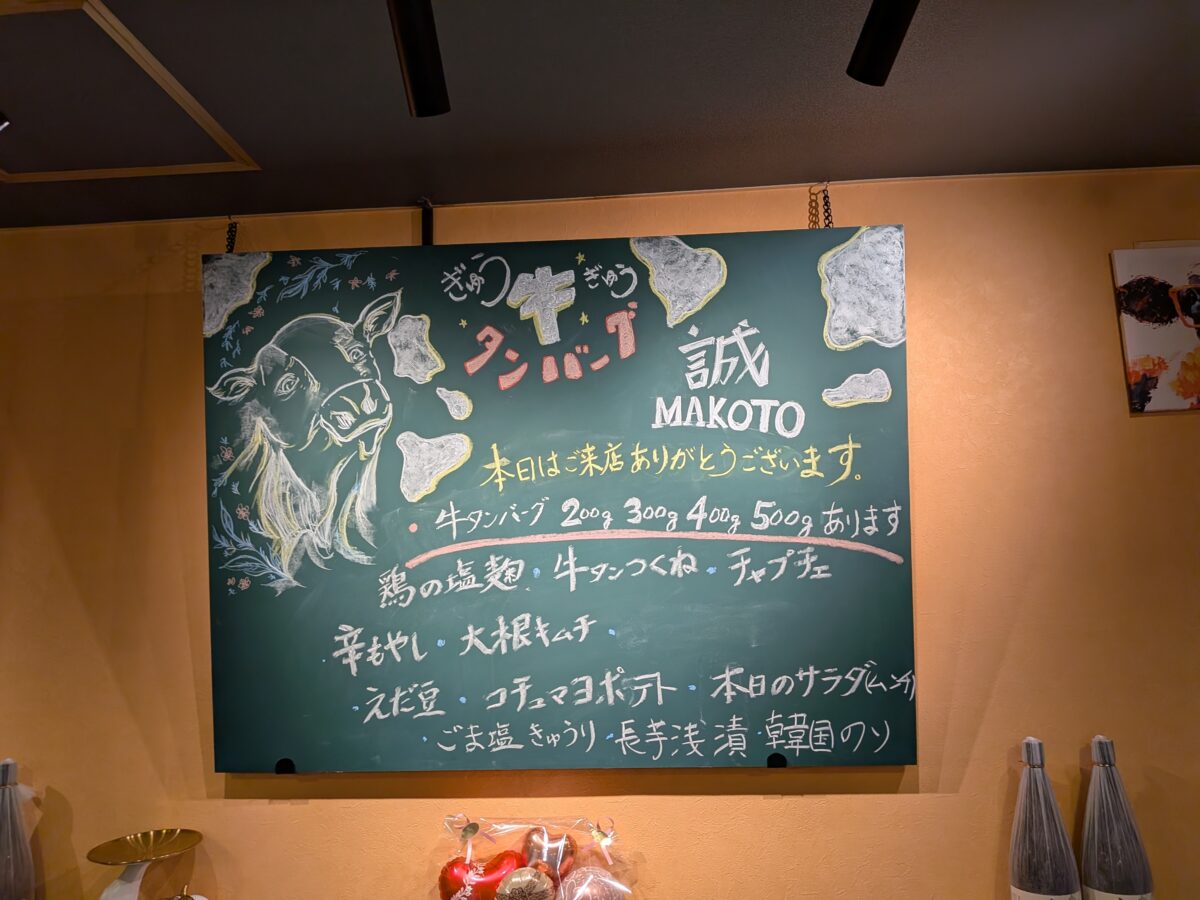 ぎゅう牛ぎゅう
タンバーグ
誠
MAKOTO
本日はご来店ありがとうございます。
・牛タンバーグ 200g 300g 400g 500g あります
鶏の塩麹・牛タンつくね・チャプチェ
・辛もやし・大根キムチ・
・えだ豆・コチュマヨポテト・本日のサラダ(ムンチ)
・ごま塩きゅうり・長芋浅漬・韓国のり